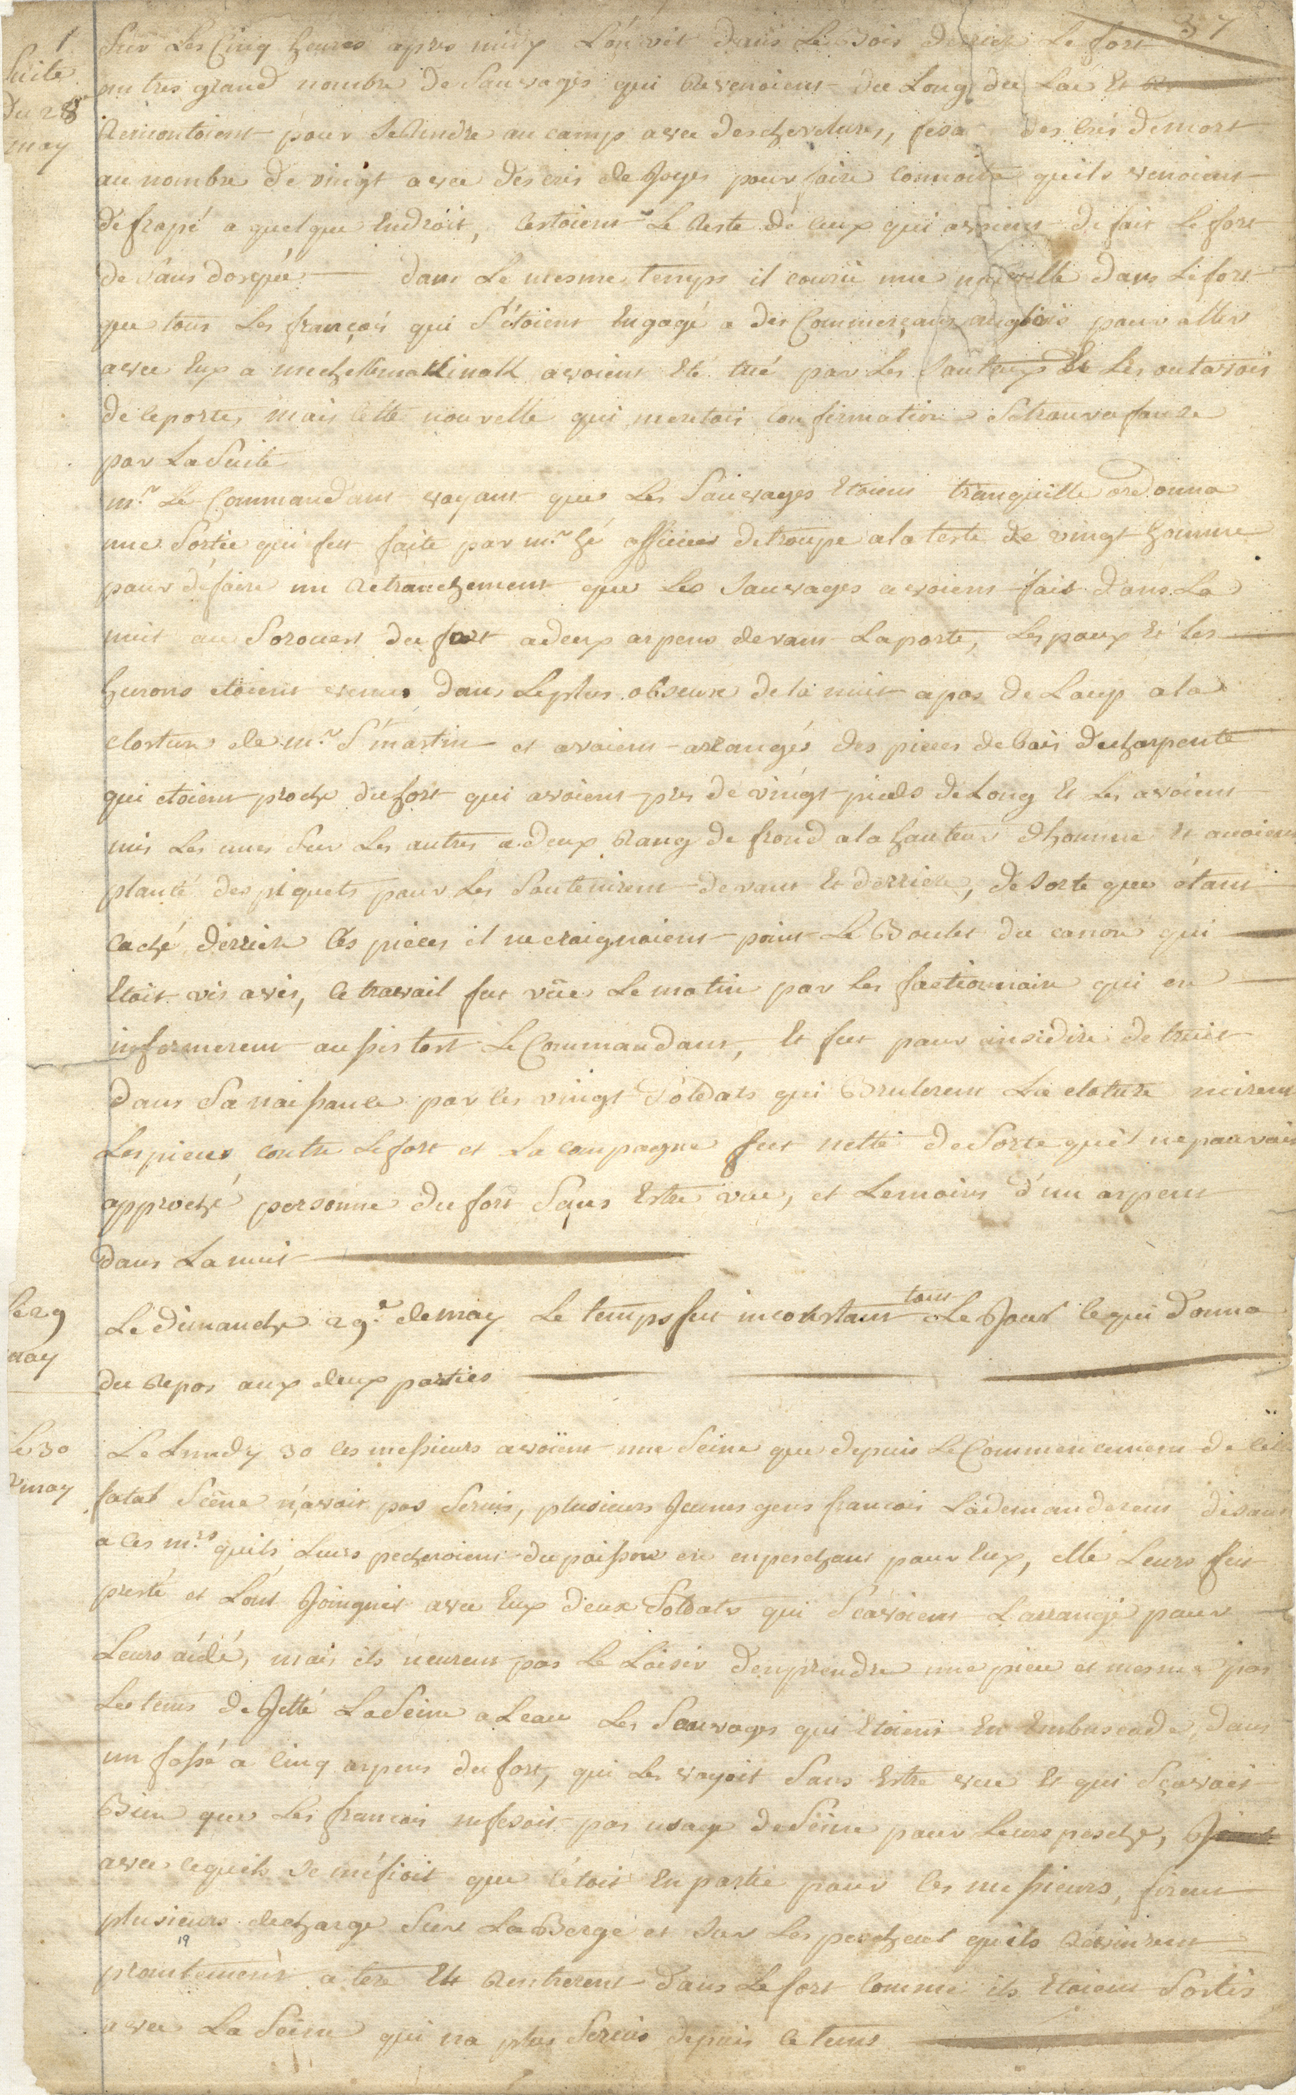 37
1
Suite
du 28
may
Sur Les Cinq heures apres midy L'on vit dans Les bois derriere Le fort
un tres grand nombre de Sauvages qui Revenoient du Long du Lac Et
Remontoient pour se Rendre au camp avec des chevelures, des cris de mort
au nombre de vingt avec des cris de Joyes pour faire connoitre quils venoient
de frapé a quelque Endroit, Cestoient Le Reste de ceux qui avoient defait Le fort
de dans Le mesme temps il couru une nouvelle dans Le fort
que tous Les françois qui S'étoient Engagé a des Commerçants anglois pour aller
avec Eux a michelimakinak avoient Eté tué par Les Et Les outavois
de ce poste, mais Cette nouvelle qui meritois confirmation Se trouva fausse
par La Suite
mr Le Commandant voyant que Les Sauvages Etoient tranquille ordonna
une Sortie qui fut faite par mr hé officier de troupe a la teste de vingt homme
pour défaire un Retranchement que Les Sauvages avoient fait dans La
nuit au Sorouest du fort a deux arpens devant La porte, Les poux Et Les
hurons etoient venus dans Le plus obscure de la nuit a pas de Loup a la
closture de mr St martin et avoient arrangés des pieces de bois de charpente
qui etoient proche du fort qui avoient prs de vingt pieds de Long Et Les avoient
mis Les unes Sur Les autres a deux Rang de frond a la hauteur dhomme Et avoient
planté des piquets pour Les Soutenirent devant Et derriere, de sorte que étant
caché derriere Ces pieces il ne craignoient point Le Boulet du canon qui
Etoit vis avis, Ce travail fut vües Le matin par les factionnaire qui en
informerent aussis tost Le Commandant, Et fut pour ainsidire detruit
dans Sa naissance par les vingt Soldats qui Brulerent La cloture mirent
Les pieces contre Le fort et La campagne fut nette de Sorte quil ne pouvoit
approché personne du fort Sans Estre vue, et Le moins d'un arpent
dans La nuit
le 29
may
Le dimanche 29e de may Le temps fut inconstant tout Le Jour ce qui donna
du Repos aux deux parties
Le 30
may
Le Lundy 30 Ces messieurs avoient une Seine que depuis Le Commencement de Cette
fatal Scêne n'avoit pas Servis, plusieurs Jeunes gens francois La demanderent disant
a Ces mrs quils Leurs pecheroient du poisson en en peschant pour Eux, elle Leurs fut
presté et L'ont Joingnit avec Eux deux Soldats qui Sçavoient Larrangé pour
Leurs aidé, mais ils n'eurent pas Le Loisir d'en prendre une piece et mesme pas
Le tems de Jetté La Seine a Leau Les Sauvages qui Etoient En Embuscade, dans
un fossé a Cinq arpens du fort, qui Les voyoit Sans Estre vue Et qui Sçavoit
Bien que Les francois ne fesoit pas usage de Seine pour Leurs pesche,
avec ce quils se méfioit que C'étoit En partie pour Ces messieurs, firent
plusieurs decharge Sur La Berge et Sur Les pecheur quils Revinrent
19
promtement a tere Et Rentrerent dans Le fort Comme ils Etoient Sortis
avec La Seine qui na plus Servis depuis Ce tems